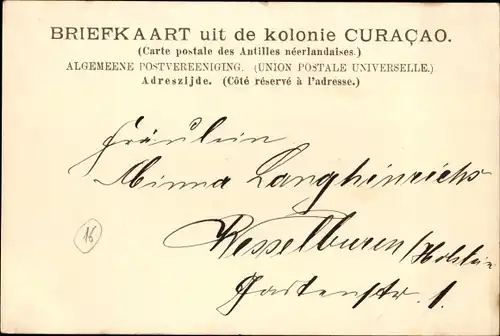 BRIEFKAART uit de kolonie CURAÇAO.
(Carte postale des Antilles néerlandaises.)
ALGEMEENE POSTVEREENIGING. (UNION POSTALE UNIVERSELLE.)
Adreszijde. (Côté réservé à l'adresse.)
Fräulein
Minna Langhinrichs
Wesselburen/Holstein
Gartenstr. 1.
16